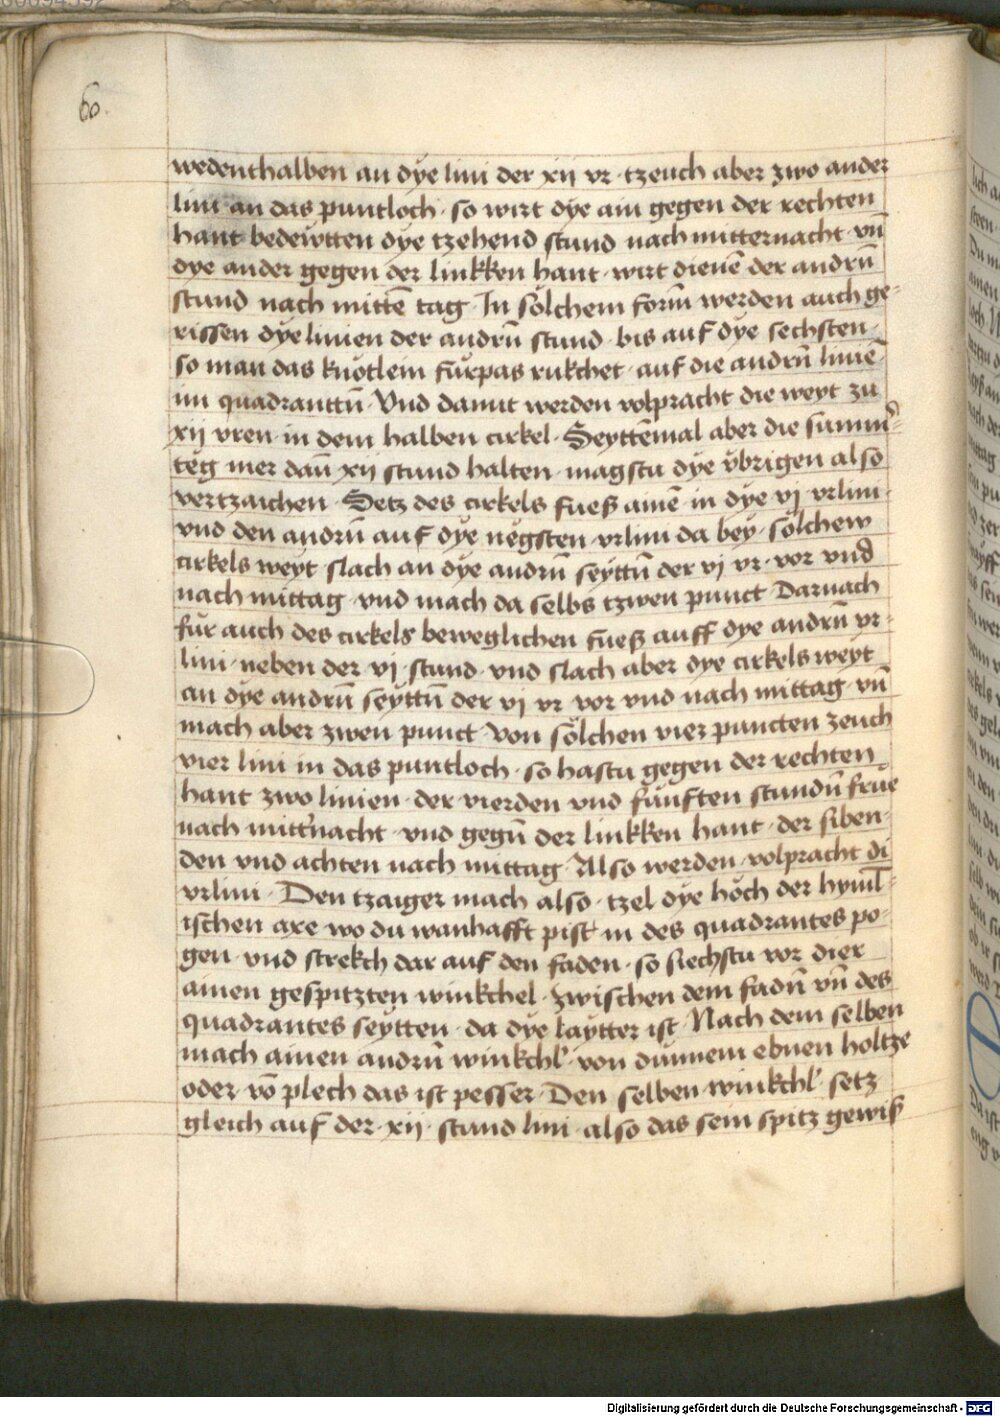 60.
wedenthalben an dÿe lini der xij vr · tzeuch aber zwo ander
lini an das puntloch · so wirt dÿe ain gegen der rechten
hant bedeẅtten dÿe tzehend stund nach mitternacht · vn̄
dye ander gegen der linkken hant · wirt dienē der andrn̄
stund nach mittē tag · In sölchem form̄ werden auch ge-
rissen dÿe linien der andrn̄ stund · bis auf dÿe sechsten ·
so man das knötlein fürpas rukchet · auf die andrn̄ liniē ·
im quadranttn̄ · Vnd damit werden volpracht die weyt zu
xij vren · in dem halben cirkel · Seyttēmal aber die summ̄-
teg mer dan̄ xij stund halten · magstu dÿe v̈brigen also
vertzaichen · Setz des cirkels fueß ainē in dÿe vj vrlini ·
vnd den andrn̄ auf dÿe negsten · vrlini da bey · sölchew
cirkels weyt slach an dÿe andrn̄ seÿttn̄ der vj vr · vor vnd
nach mittag · vnd mach da selbs tzwen punct · Darnach
für auch des cirkels beweglichen fueß auff dye andrn̄ vr-
lini · neben der vj · stund · vnd slach aber dye cirkels weyt
an dÿe andrn̄ seÿttn̄ der vj vr vor vnd nach mittag · vn̄
mach aber zwen punct · Von sölchen vier puncten zeuch
vier lini in das puntloch · so hastu gegen der rechten
hant zwo linien · der vierden vnd fünften stundn̄ frue
nach mitt'nacht · vnd gegn̄ der linkken hant · der siben-
den vnd achten nach mittag · Also werden · volpracht di
vrlini · Den tzaiger mach also · tzel dÿe höch der hyml-
ischen axe wo du wanhafft pist in des quadrantes po-
gen · vnd strekch dar auf den faden · so siechstu vor dier
ainen gespitzten winkchel · zwischen dem fadn̄ vn̄ des
quadrantes seÿtten · da dÿe laÿtter ist · Nach dem selben
mach ainen andrn̄ winkchl' · von dünnem ebnen holtze
oder vō plech das ist pesser · Den selben winkchl' · setz
gleich auf der · xij · stund lini · also das sein spitz gewis
Digitalisierung gefördert durch die Deutsche Forschungsgemeinschaft - DFG